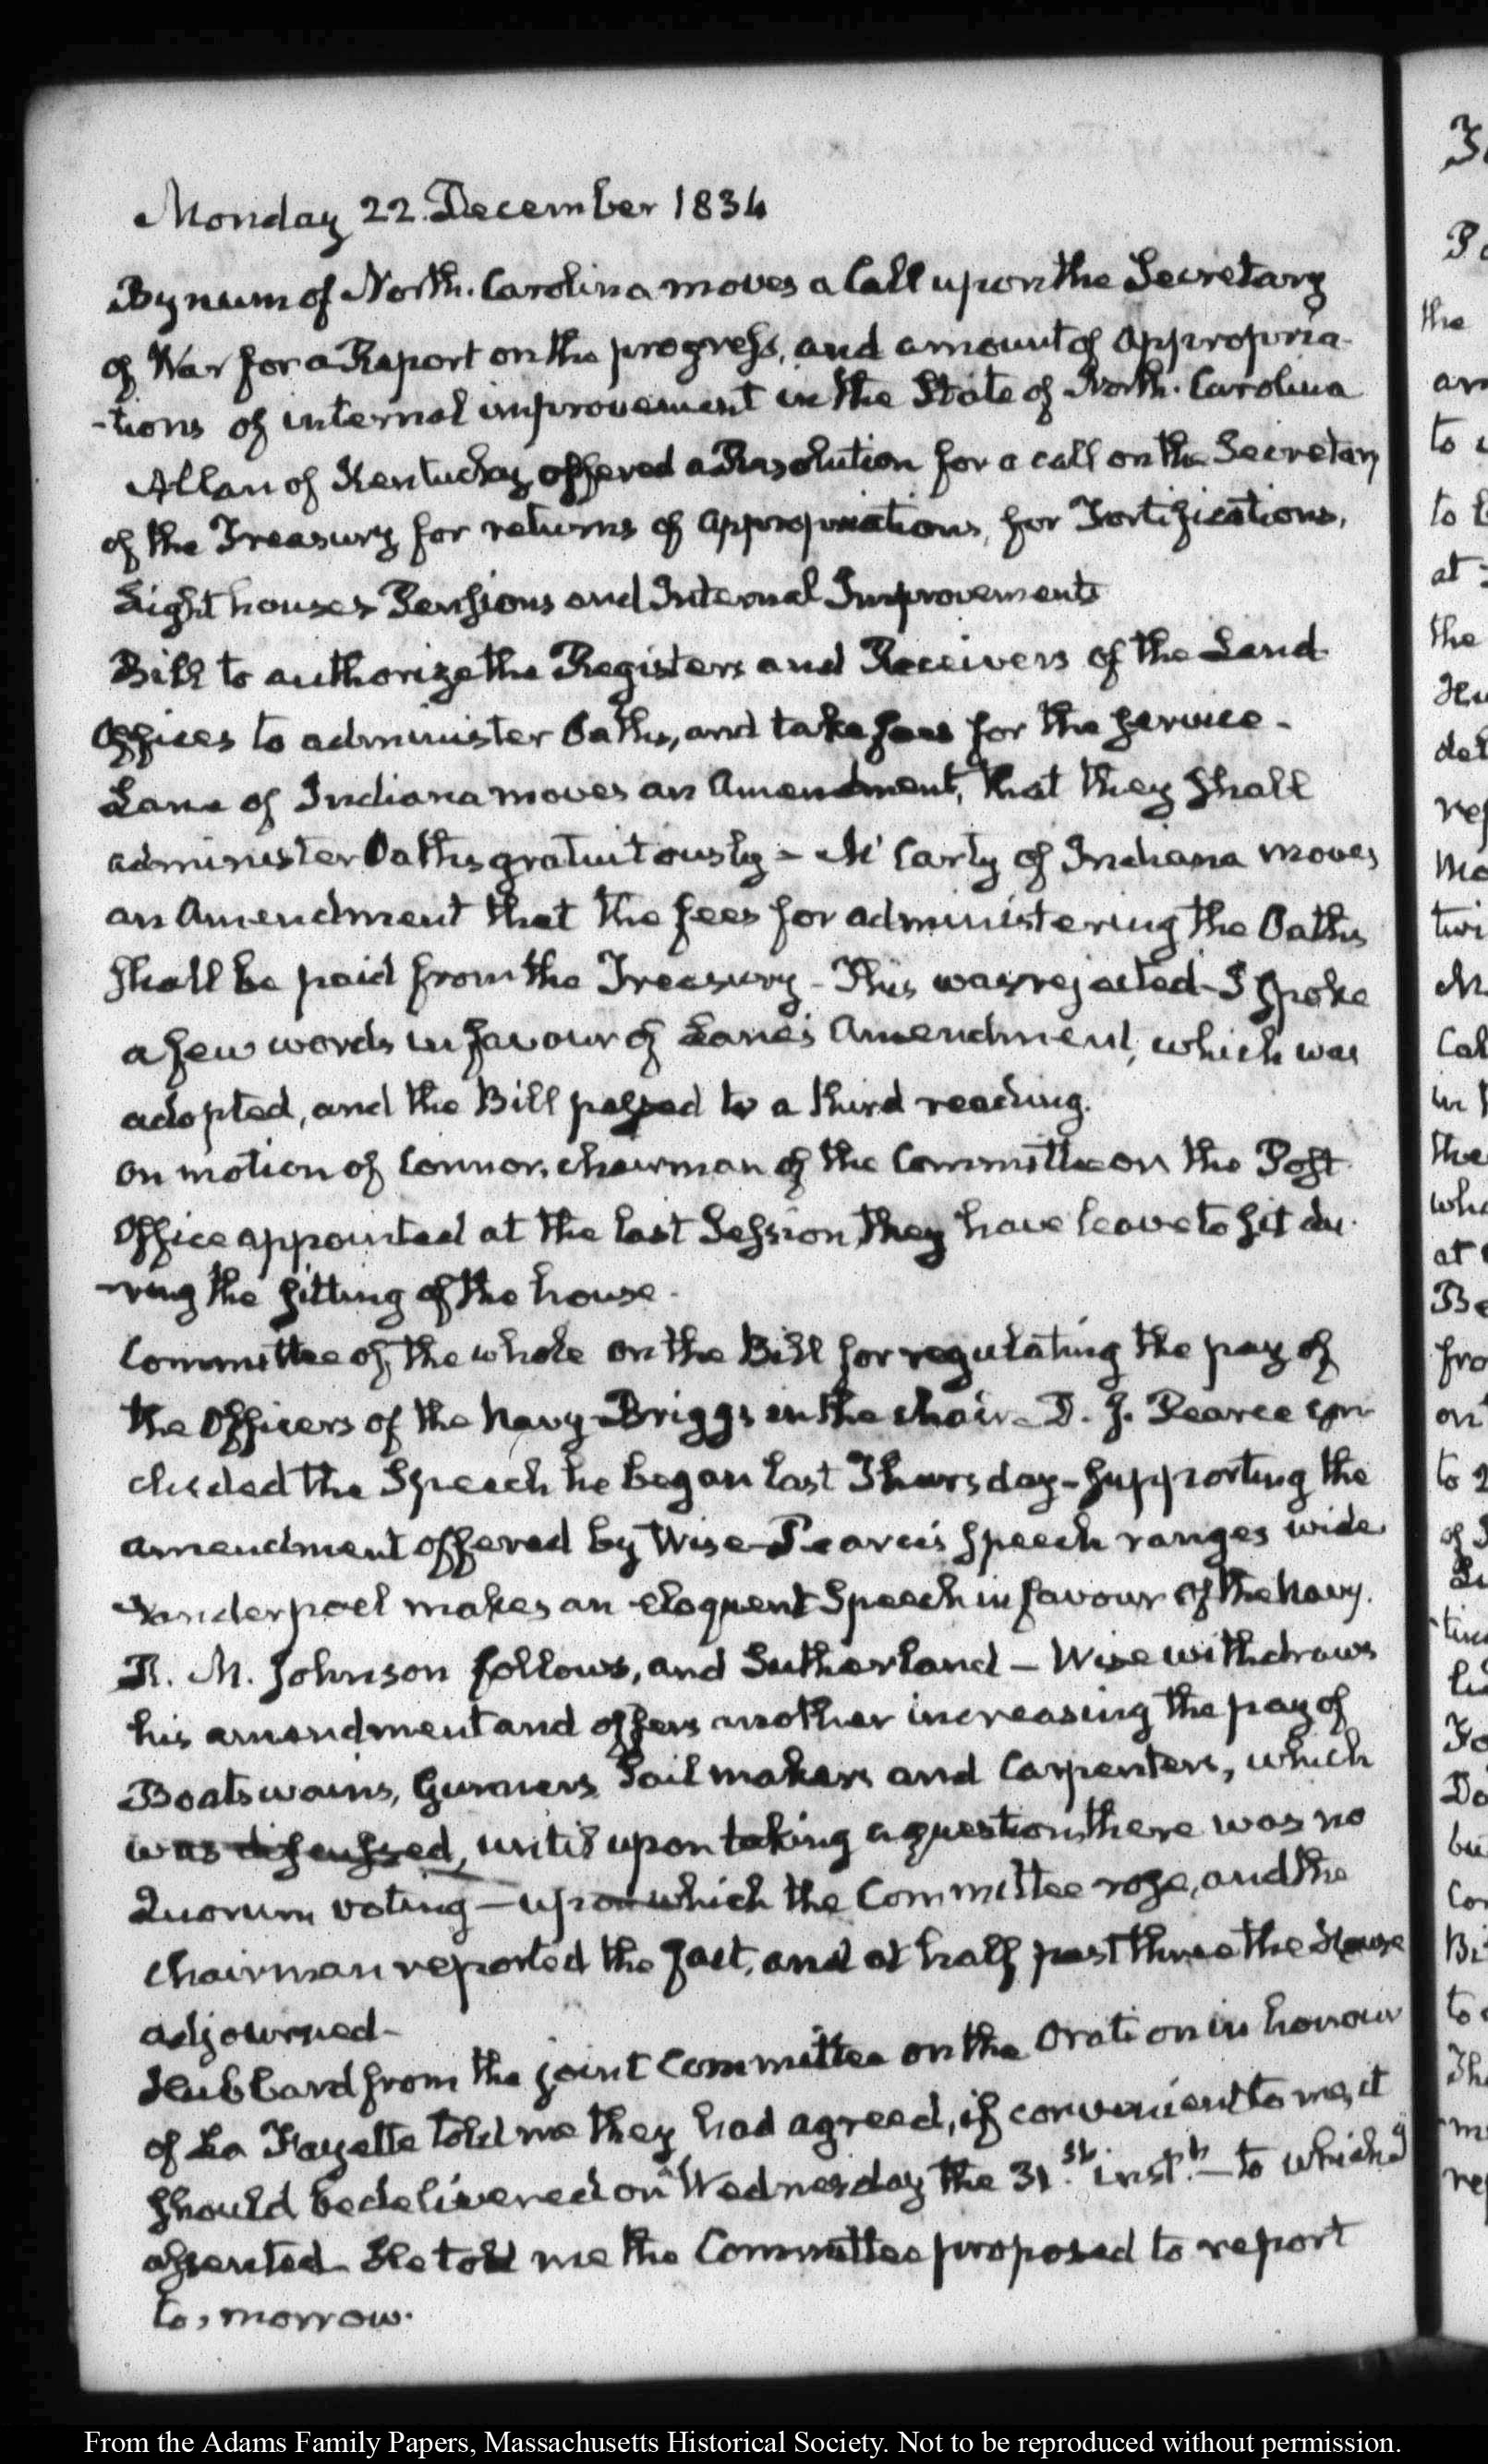 Monday 22. December 1834
Bynum of North. Carolina moves a Call upon the Secretary
of War for a Report on the progress, and amount of appropria-
-tions of internal improvement in the State of North. Carolina
Allan of Kentucky offered a Resolution for a call on the Secretary
of the Treasury for returns of appropriations, for Fortifications,
Light houses Pensions and Internal Improvements
Bill to authorize the Registers and Receivers of the Land
Offices to administer Oaths, and take fees for the service-
Lane of Indiana moves an Amendment, that they shall
administer Oaths gratuitously - Mc Carty of Indiana moves
an Amendment that the fees for administering the Oaths
shall be paid from the Treasury - This was rejected - I spoke
a few words in favour of Lane's Amendment, which was
adopted, and the Bill passed to a third reading.
On motion of Connor, chairman of the Committee on the Post
Office appointed at the last Session, they have leave to sit du-
-ring the sitting of the house.
Committee of the whole on the Bill for regulating the pay of
the Officers of the Navy - Briggs in the chair - D. J. Pearce con
cluded the Speech he began last Thursday - supporting the
amendment offered by Wise - Pearce's speech ranges wide
Vanderpoel makes an eloquent Speech in favour of the Navy.
R. M. Johnson follows, and Sutherland - Wise withdraws
his amendment and offers another increasing the pay of
Boatswains, Gunners Sailmakers and Carpenters, which
was discussed, until upon taking a question there was no
Quorum voting - upon which the Committee rose, and the
chairman reported the fact, and at half past three the House
adjourned-
Hubbard from the joint Committee on the Oration in honour
of La Fayette told me they had agreed, if convenient to me, it
should be delivered on Wednesday the 31.st. inst.t - to which I
assented - He told me the Committee proposed to report
to, morrow.
From the Adams Family Papers, Massachusetts Historical Society. Not to be reproduced without permission.